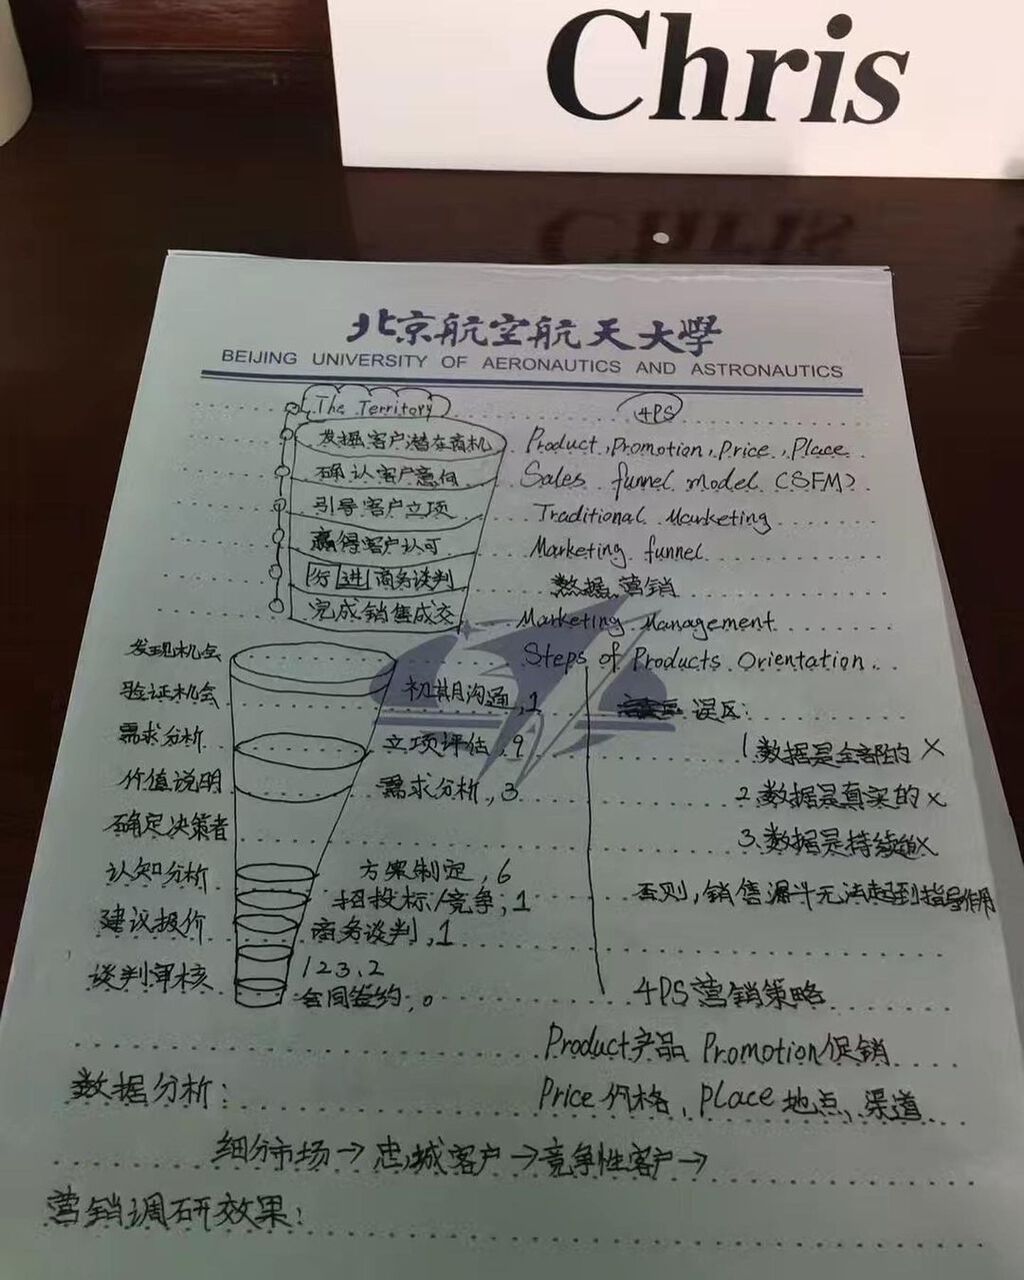 Chris
北京航空航天大學
BEIJING UNIVERSITY OF AERONAUTICS AND ASTRONAUTICS
The Territory
4PS
发掘客户潜在商机
Product, Promotion, Price, Place
确认客户意向
Sales funnel model (SFM)
引导客户立项
Traditional Marketing
赢得客户认可
Marketing funnel
进商务谈判
数据营销
完成销售成交
Marketing Management
Steps of Products Orientation
发现机会
验证机会
初期沟通,1
误区:
需求分析
立项评估,9
1.数据是全部的 ×
价值说明
需求分析,3
2.数据是真实的 ×
确定决策者
3.数据是持续的 ×
认知分析
方案制定,6
招投标/竞争,1
否则,销售漏斗无法起到指导作用
建议报价
商务谈判,1
谈判审核
123,2
合同签约,0
4PS营销策略
Product产品 Promotion促销
数据分析:
Price价格,Place地点,渠道
细分市场→忠城客户→竞争性客户→
营销调研效果: